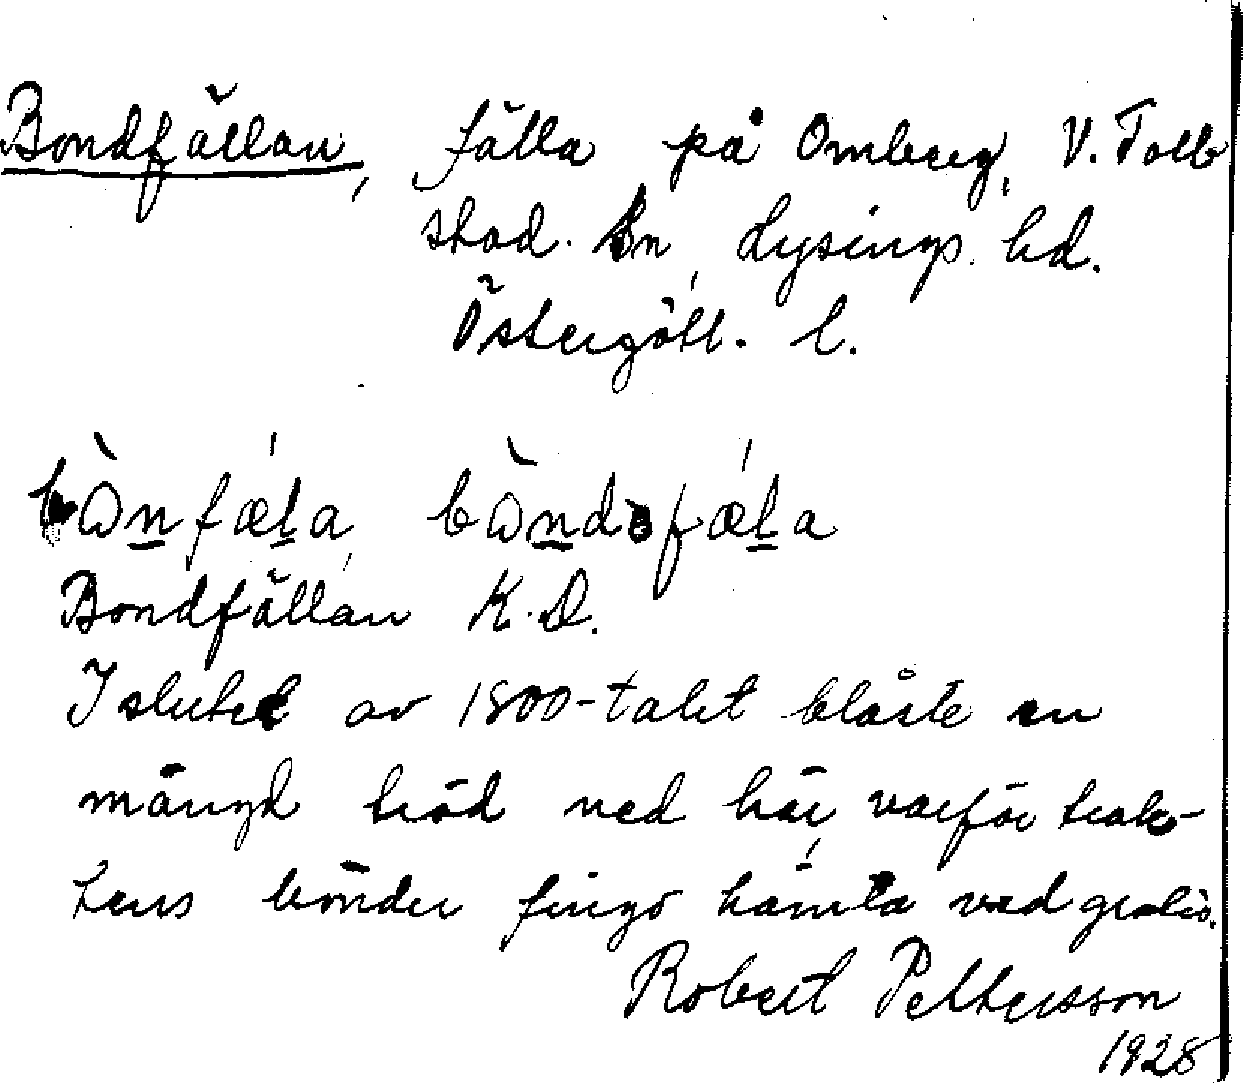 Bondfällan, fälla på Omberg, V. Toll
stad. sn, Lysings. hd.
Östergötl. l.
bònfæ̀ḻa, bòndofæ̀ḻa
Bondfällan K.D.
I slutet av 1800-talet blåste en
mängd träd ned här, varför trak-
tens bönder fingo hämta ved gratis.
Robert Pettersson
1928